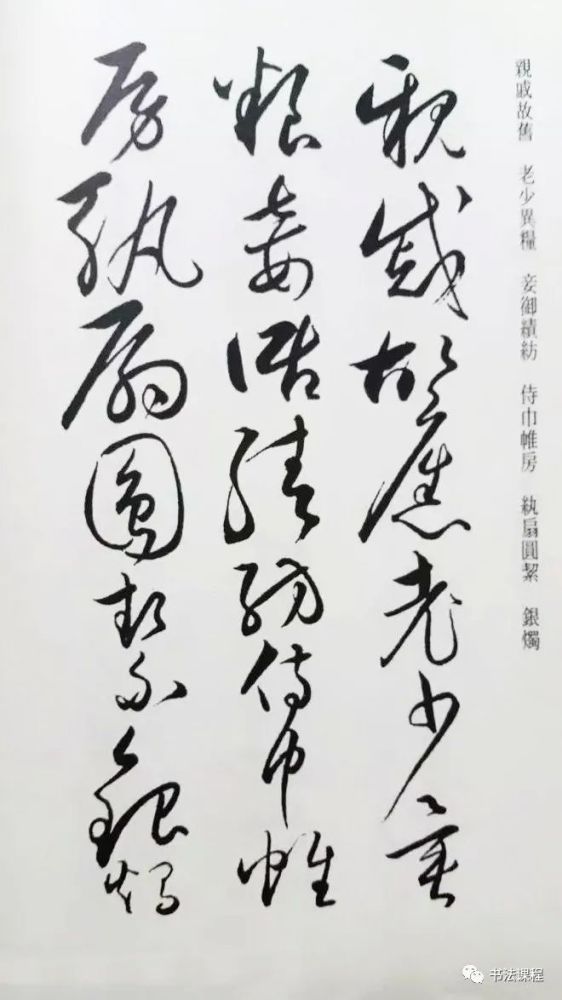 親戚故舊　老少異糧　妾御績紡　侍巾帷房　紈扇圓絜　銀燭
親戚故舊老少異
糧妾御績紡侍巾帷
房紈扇圓絜銀燭
书法课程